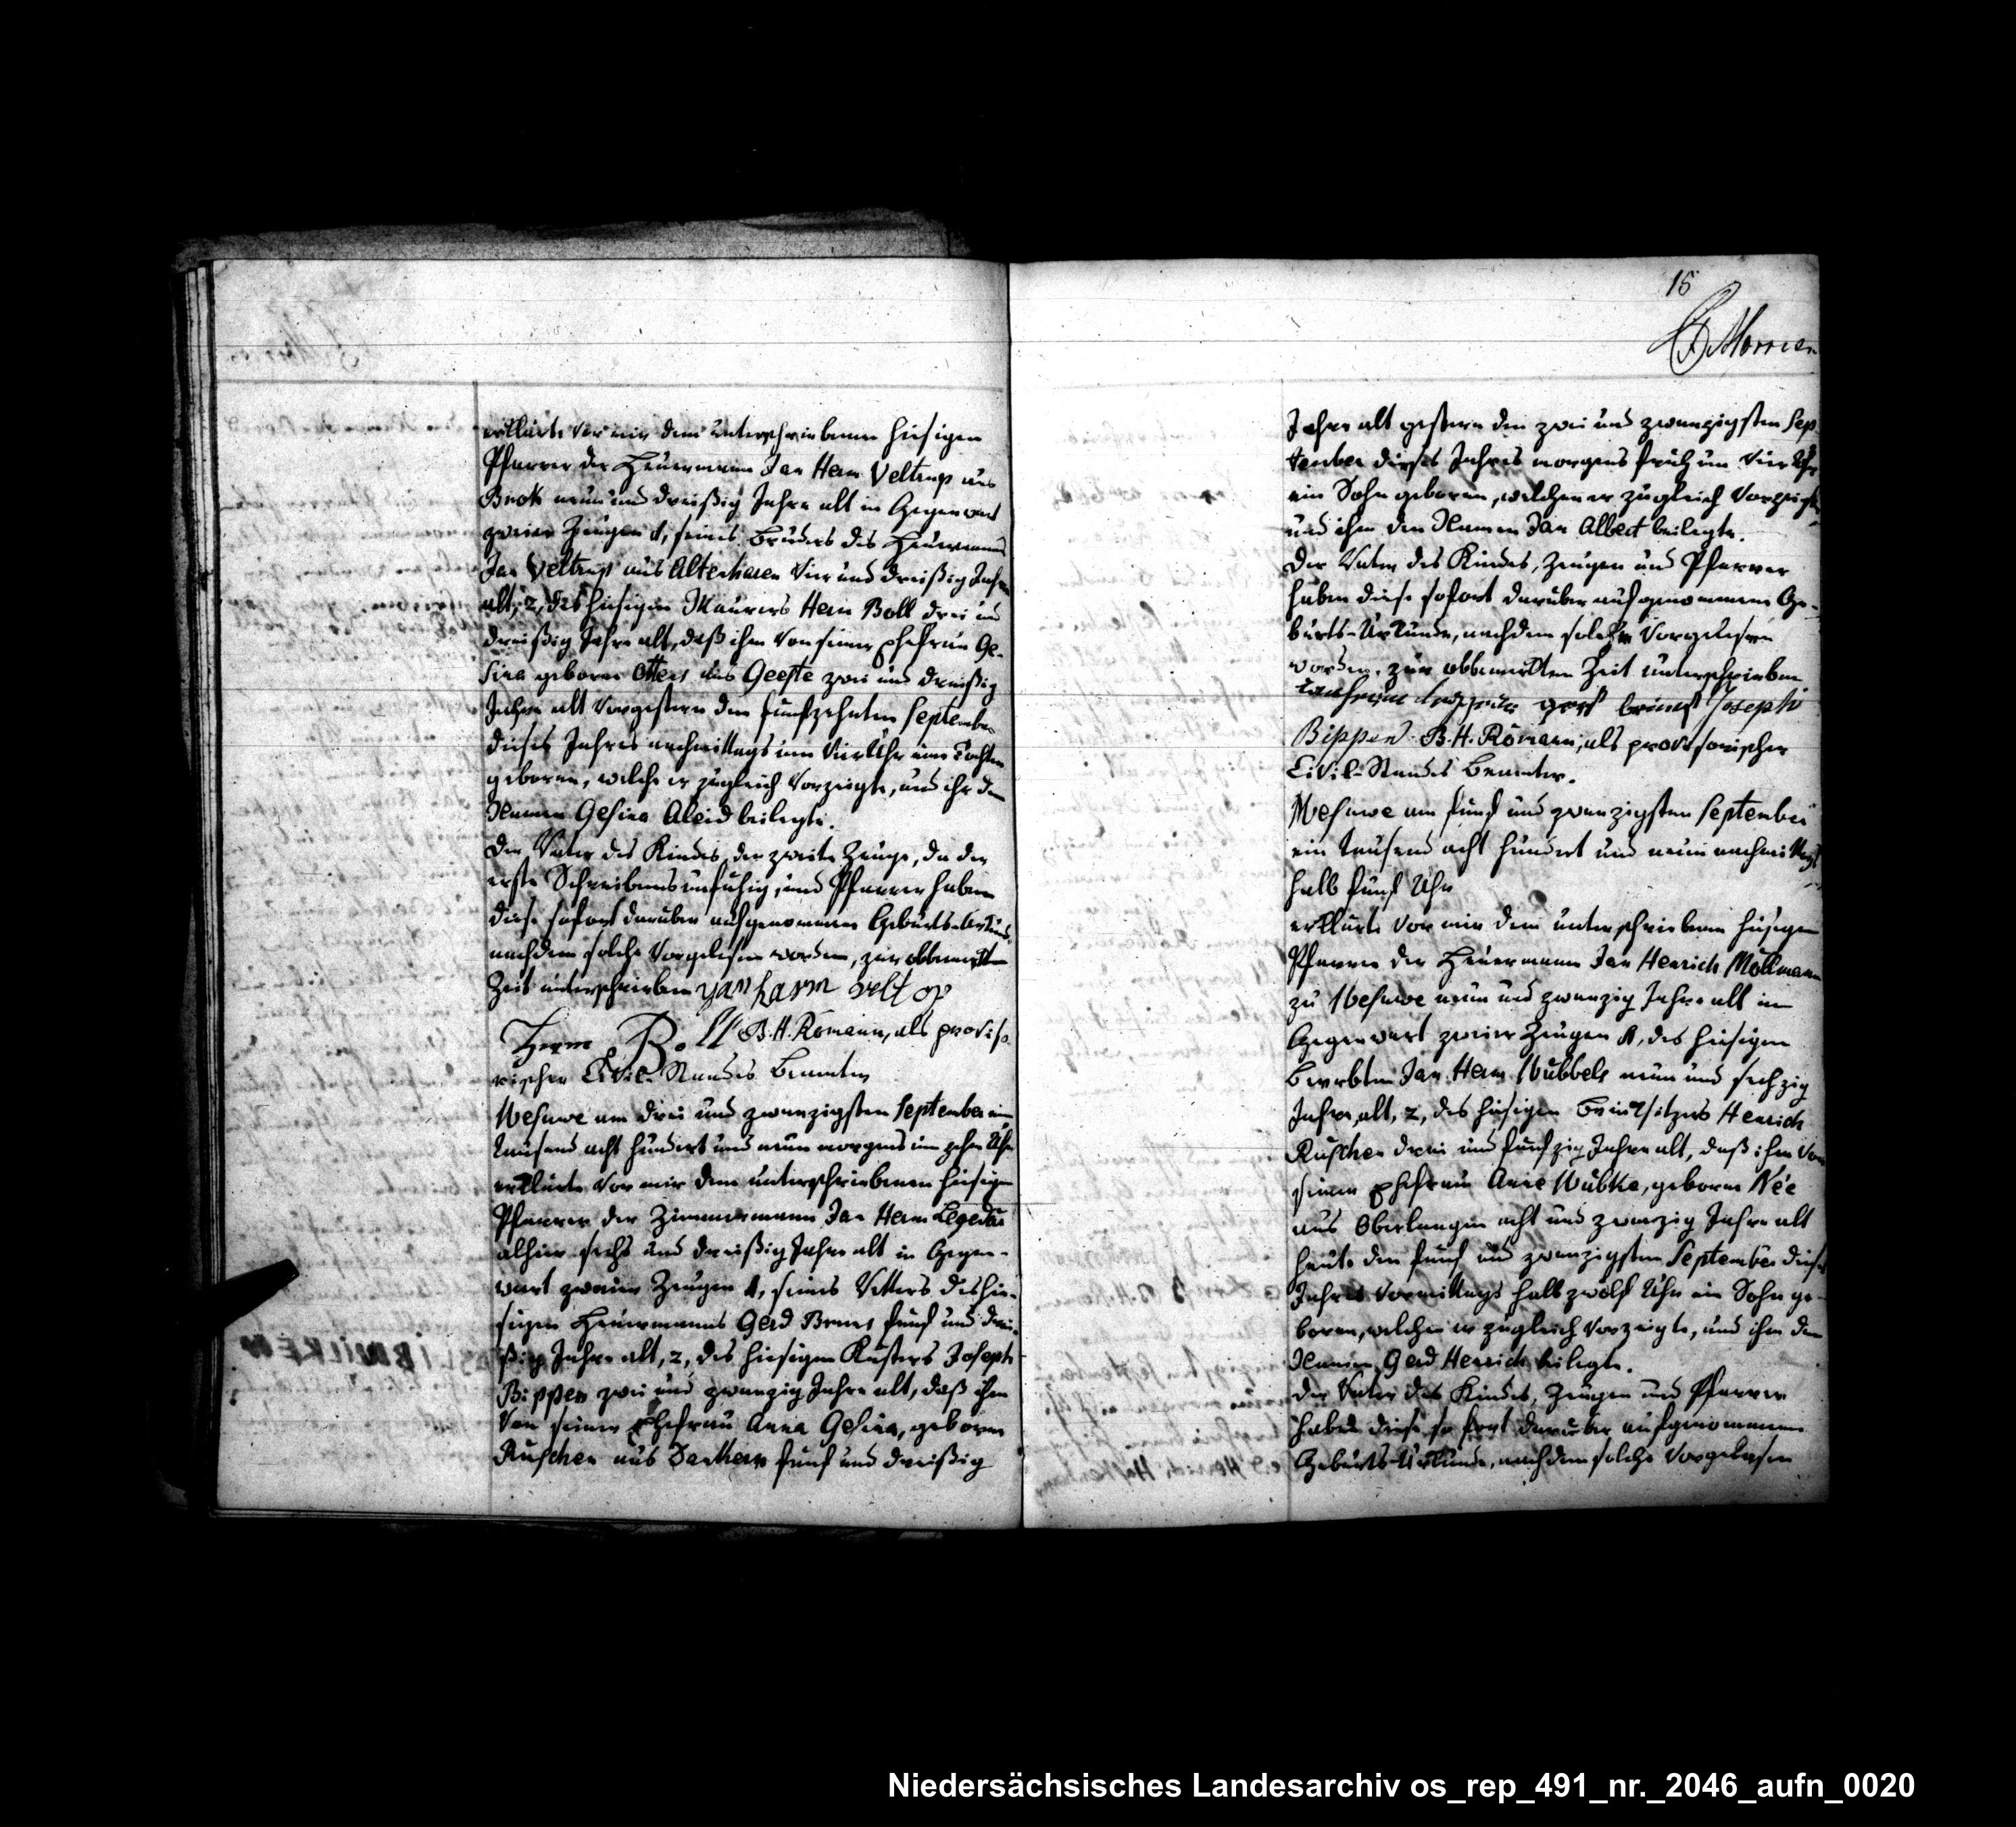 erklärte vor mir dem unterschriebenen hiesigen
Pfarrer der Heuermann Jan Herm Veltrup aus
Brok neun und dreißig Jahre alt in Gegenwart
zweier Zeugen 1, seines Bruders des Heuermanns
Jan Veltrup aus Alterharen vier und dreißig Jahre
alt, 2, des hiesigen Maurers Herm Boll drei und
dreißig Jahre alt, daß ihm von seiner Ehefrau Ge-
sina geborne Otters aus Geeste zwei und dreißig
Jahre alt vorgestern den fünfzehnten September
dieses Jahres nachmittags um vier Uhr eine Tochter
geboren, welche er zugleich vorzeigte, und ihr den
Namen Gesina Aleid beilegte.
Der Vater des Kindes, der zweite Zeuge, da der
erste Schreibens unfähig, und Pfarrer haben
diese sofort darüber aufgenommene Geburts-Urkunde,
nachdem solche vorgelesen worden, zur obbemerkten
Zeit unterschrieben yan harm velt op
Herm Boll B. H. Römann, als proviso-
rischer Civil-Standes Beamter
Wesuwe am drei und zwanzigsten September ein
tausend acht hundert und neun morgens um zehn Uhr
erklärte vor mir dem unterschriebenen hiesigen
Pfarrer der Zimmermann Jan Herm
alhier sechs und dreißig Jahre alt in Gegen-
wart zweier Zeugen 1, seines Vetters des hie-
sigen Heuermanns Gerd Bruns fünf und drei-
ßig Jahre alt, 2, des hiesigen Küsters Joseph
Bippen zwei und zwanzig Jahre alt, daß ihm
von seiner Ehefrau Anna Gesina, geborne
Ruschen aus Dankern fünf und dreißig
15
Jahre alt gestern den zwei und zwanzigsten Sep-
tember dieses Jahres morgens früh um vier Uhr
ein Sohn geboren, welchen er zugleich vorzeigte
und ihm den Namen Jan Albert beilegte.
Der Vater des Kindes, Zeugen und Pfarrer
haben diese sofort darüber aufgenommene Ge-
burts-Urkunde, nachdem solche vorgelesen
worden, zur obbemerkten Zeit unterschrieben
Joseph
Bippen B. H. Römann, als provisorischer
Civil-Standes Beamter.
Wesuwe am fünf und zwanzigsten September
ein tausend acht hundert und neun nachmittags
halb fünf Uhr
erklärte vor mir dem unterschriebenen hiesigen
Pfarrer der Heuermann Jan Henrich Möllmann
zu Wesuwe neun und zwanzig Jahre alt in
Gegenwart zweier Zeugen 1, des hiesigen
Beerbten Jan Herm Wübbels neun und sechzig
Jahre alt, 2, des hiesigen Brinksitzers Henrich
Ruschen drei und fünfzig Jahre alt, daß ihm von
seiner Ehefrau Anne Wübke, geborne Née
aus Oberlangen acht und zwanzig Jahre alt
heute den fünf und zwanzigsten September dieses
Jahres vormittags halb zwölf Uhr ein Sohn ge-
boren, welchen er zugleich vorzeigte, und ihm den
Namen Gerd Henrich beilegte.
Der Vater des Kindes, Zeugen und Pfarrer
haben diese sofort darüber aufgenommene
Geburts-Urkunde, nachdem solche vorgelesen
Niedersächsisches Landesarchiv os_rep_491_nr._2046_aufn_0020